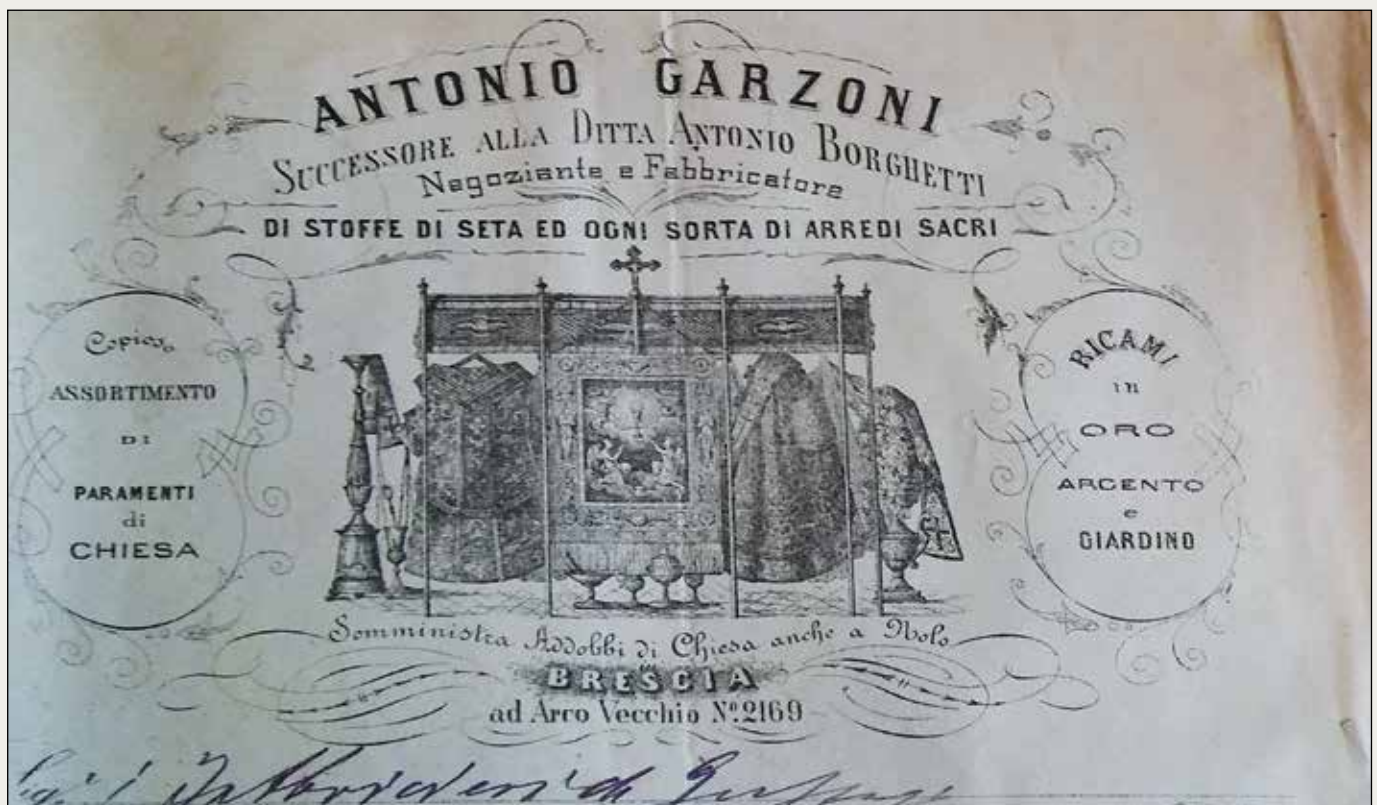 ANTONIO GARZONI
SUCCESSORE ALLA DITTA ANTONIO BORGHETTI
Negoziante e Fabbricatore
DI STOFFE DI SETA ED OGNI SORTA DI ARREDI SACRI
Copioso
ASSORTIMENTO
DI
PARAMENTI
di
CHIESA
RICAMI
in
ORO
ARGENTO
e
GIARDINO
Somministra Addobbi di Chiesa anche a Nolo
in
BRESCIA
ad Arco Vecchio Nº. 2169